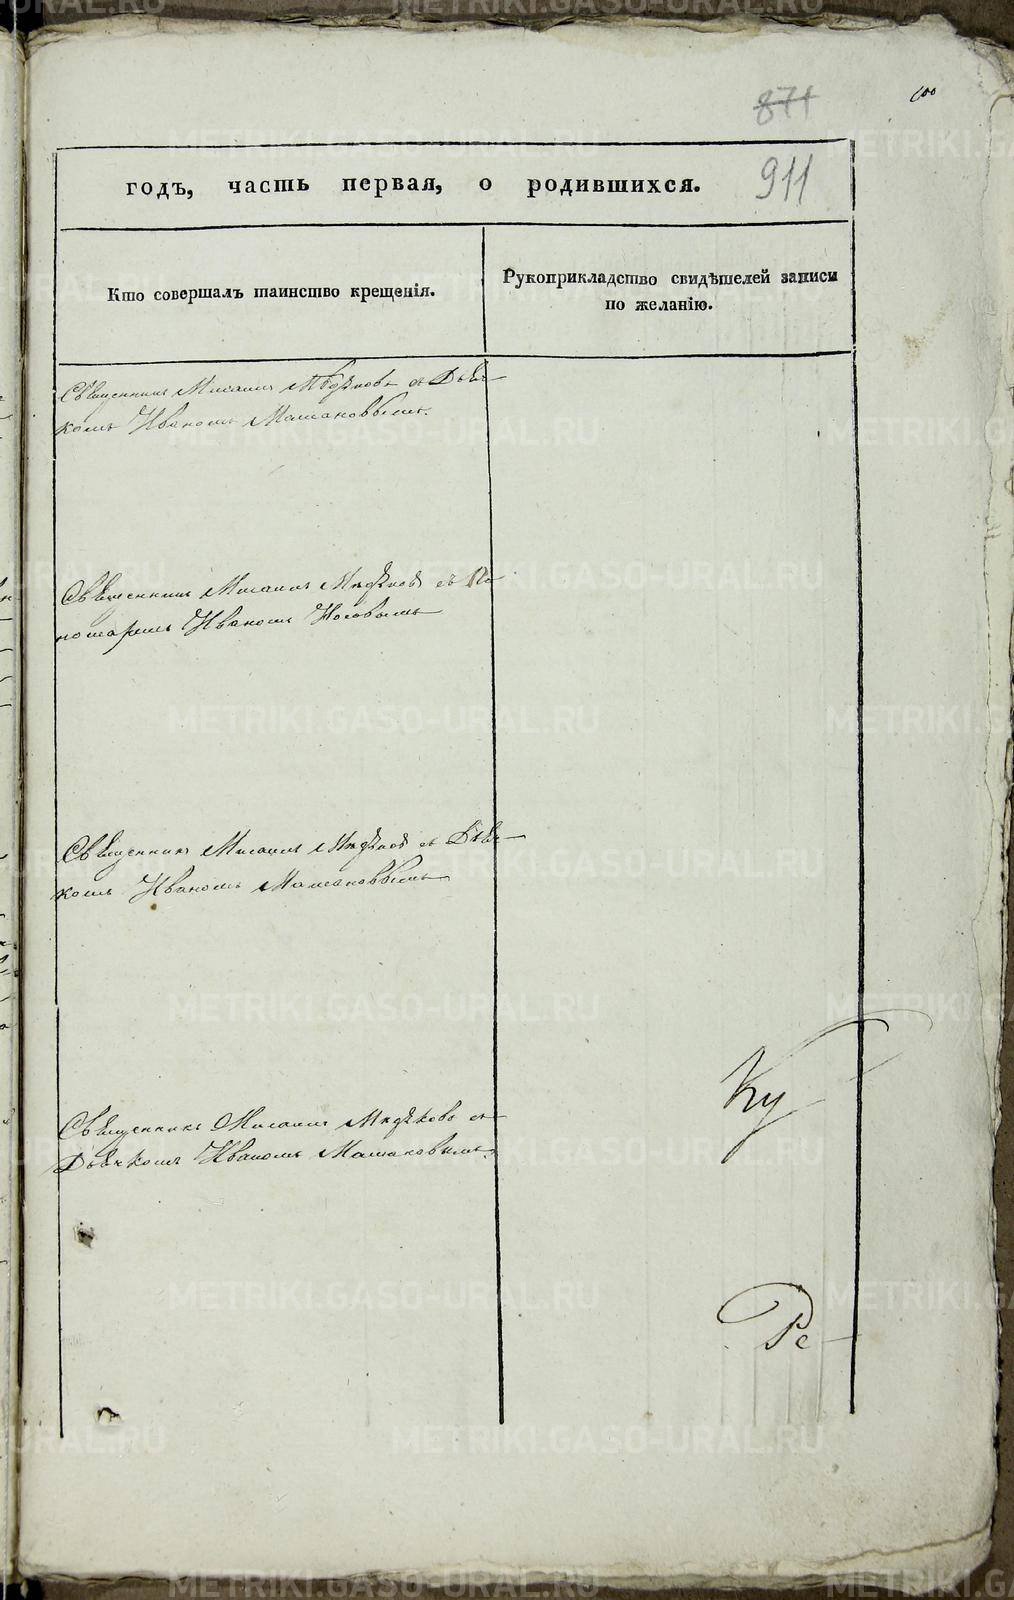 871
600
911
годъ, часть первая, о родившихся.
Кто совершалъ таинство крещенія.
Рукоприкладство свидѣтелей записи
по желанію.
Священникъ Михаилъ съ Дьяч-
комъ Иваномъ
Священникъ Михаилъ съ По-
номаремъ Иваномъ Носовымъ
Священникъ Михаилъ съ Дьяч-
комъ Иваномъ
Священникъ Михаилъ съ
Дьячкомъ Иваномъ
Ку-
Ре-
METRIKI.GASO-URAL.RU